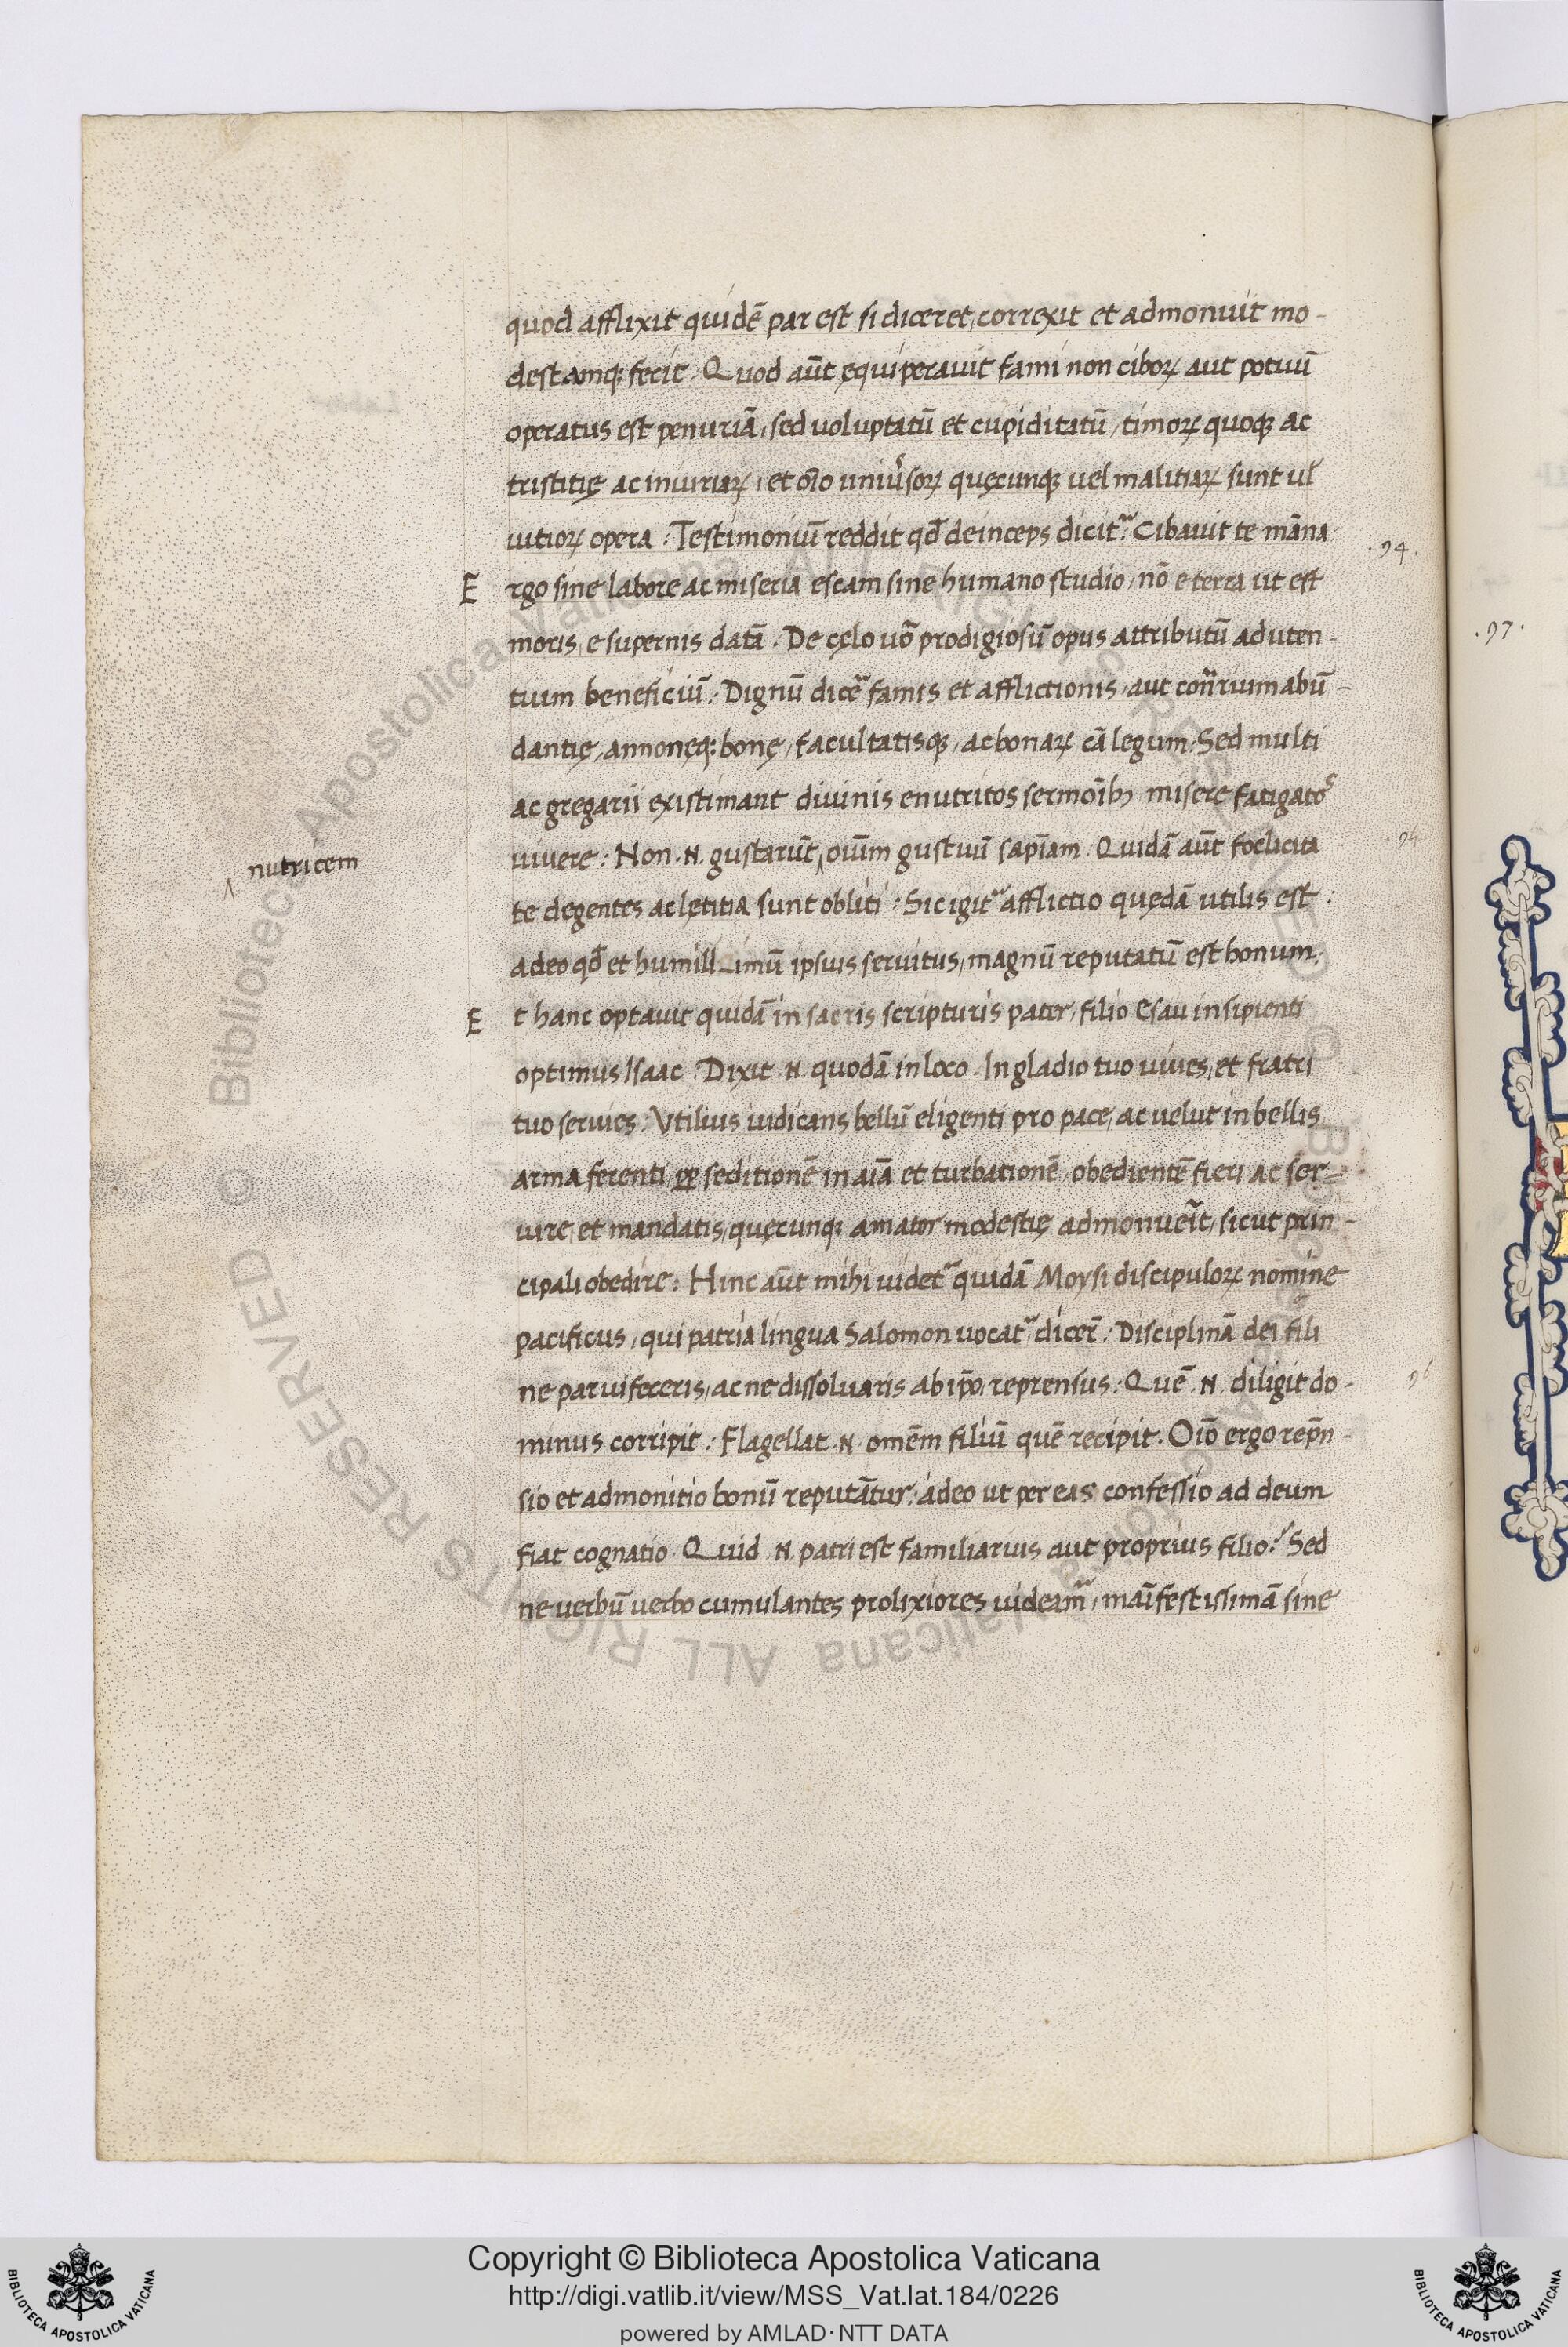 quod afflixit quidē par est si diceret, correxit et admonuit mo-
destamq; fecit. Quod aūt ęquiperauit fami non ciboꝝ aut potuū
operatus est penuriā, sed uoluptatū et cupiditatū, timoꝝ quoq; ac
tristitię ac iniuriaꝝ, et oīo uniūsoꝝ quęcunq; uel malitiaꝝ sunt ul̄
uitioꝝ opera: Testimoniū reddit qđ deinceps dicit᷑. Cibauit te māna
.94.
Ergo sine labore ac miseria escam sine humano studio, nō e terra ut est
moris, e supernis datā. De cęlo uō prodigiosū opus attributū ad uten-
.97.
tium beneficiū: Dignū dice᷑ famis et afflictionis, aut cōn̄rium abū-
dantię, annonęq; bonę, facultatisq;, ac bonaꝝ cā legum: Sed multi
ac gregarii existimant diuinis enutritos sermoībꝫ misere fatigatos
uiuere: Non .N. gustarūt ‸ oīum gustuū sapīam. Quidā aūt foelicita
‸ nutricem
te degentes ac lętitia sunt obliti: Sic igit᷑ afflictio quędā utilis est:
adeo qđ et humillimū ipsius seruitus, magnū reputatū est bonum.
Et hanc optauit quidā in sacris scripturis pater, filio Esau insipienti
optimus Isaac. Dixit .N. quodā in loco. In gladio tuo uiues, et fratri
tuo seruies: Vtilius iudicans bellū eligenti pro pace, ac uelut in bellis
arma ferenti, ꝓp seditionē in aīa et turbationē, obedientē fieri ac ser-
uire, et mandatis, quęcunq; amator modestię admonueīt, sicut prin-
cipali obedire: Hinc aūt mihi uidet᷑ quidā Moysi discipuloꝝ nomine
pacificus, qui patria lingua Salomon uocat᷑ dicer̄: Disciplinā dei fili
ne parui feceris, ac ne dissoluaris ab ip̄o reprensus: Quē .N. diligit do-
96
minus corripit: Flagellat .N. omēm filiū quē recipit. Oīo ergo rep̄n-
sio et admonitio bonū reputātur: adeo ut per eas confessio ad deum
fiat cognatio. Quid .N. patri est familiarius aut proprius filio? Sed
ne uerbū uerbo cumulantes prolixiores uideam᷑, maīfestissimā sine
© Biblioteca Apostolica Vaticana ALL RIGHTS RESERVED
Copyright © Biblioteca Apostolica Vaticana
http://digi.vatlib.it/view/MSS_Vat.lat.184/0226
powered by AMLAD·NTT DATA
BIBLIOTECA APOSTOLICA VATICANA
BIBLIOTECA APOSTOLICA VATICANA